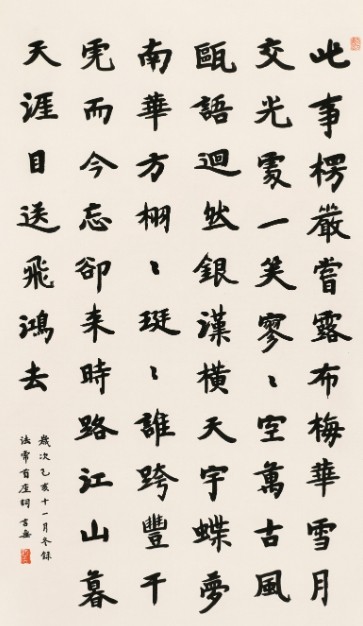 此事楞嚴嘗露布梅華雪月
交光處一笑寥〻空萬古風
甌語迴然銀漢橫天宇蝶夢
南華方栩〻珽〻誰跨豐干
虎而今忘卻来時路江山暮
天涯目送飛鴻去
歲次乙亥十一月冬錄
法常首座詞